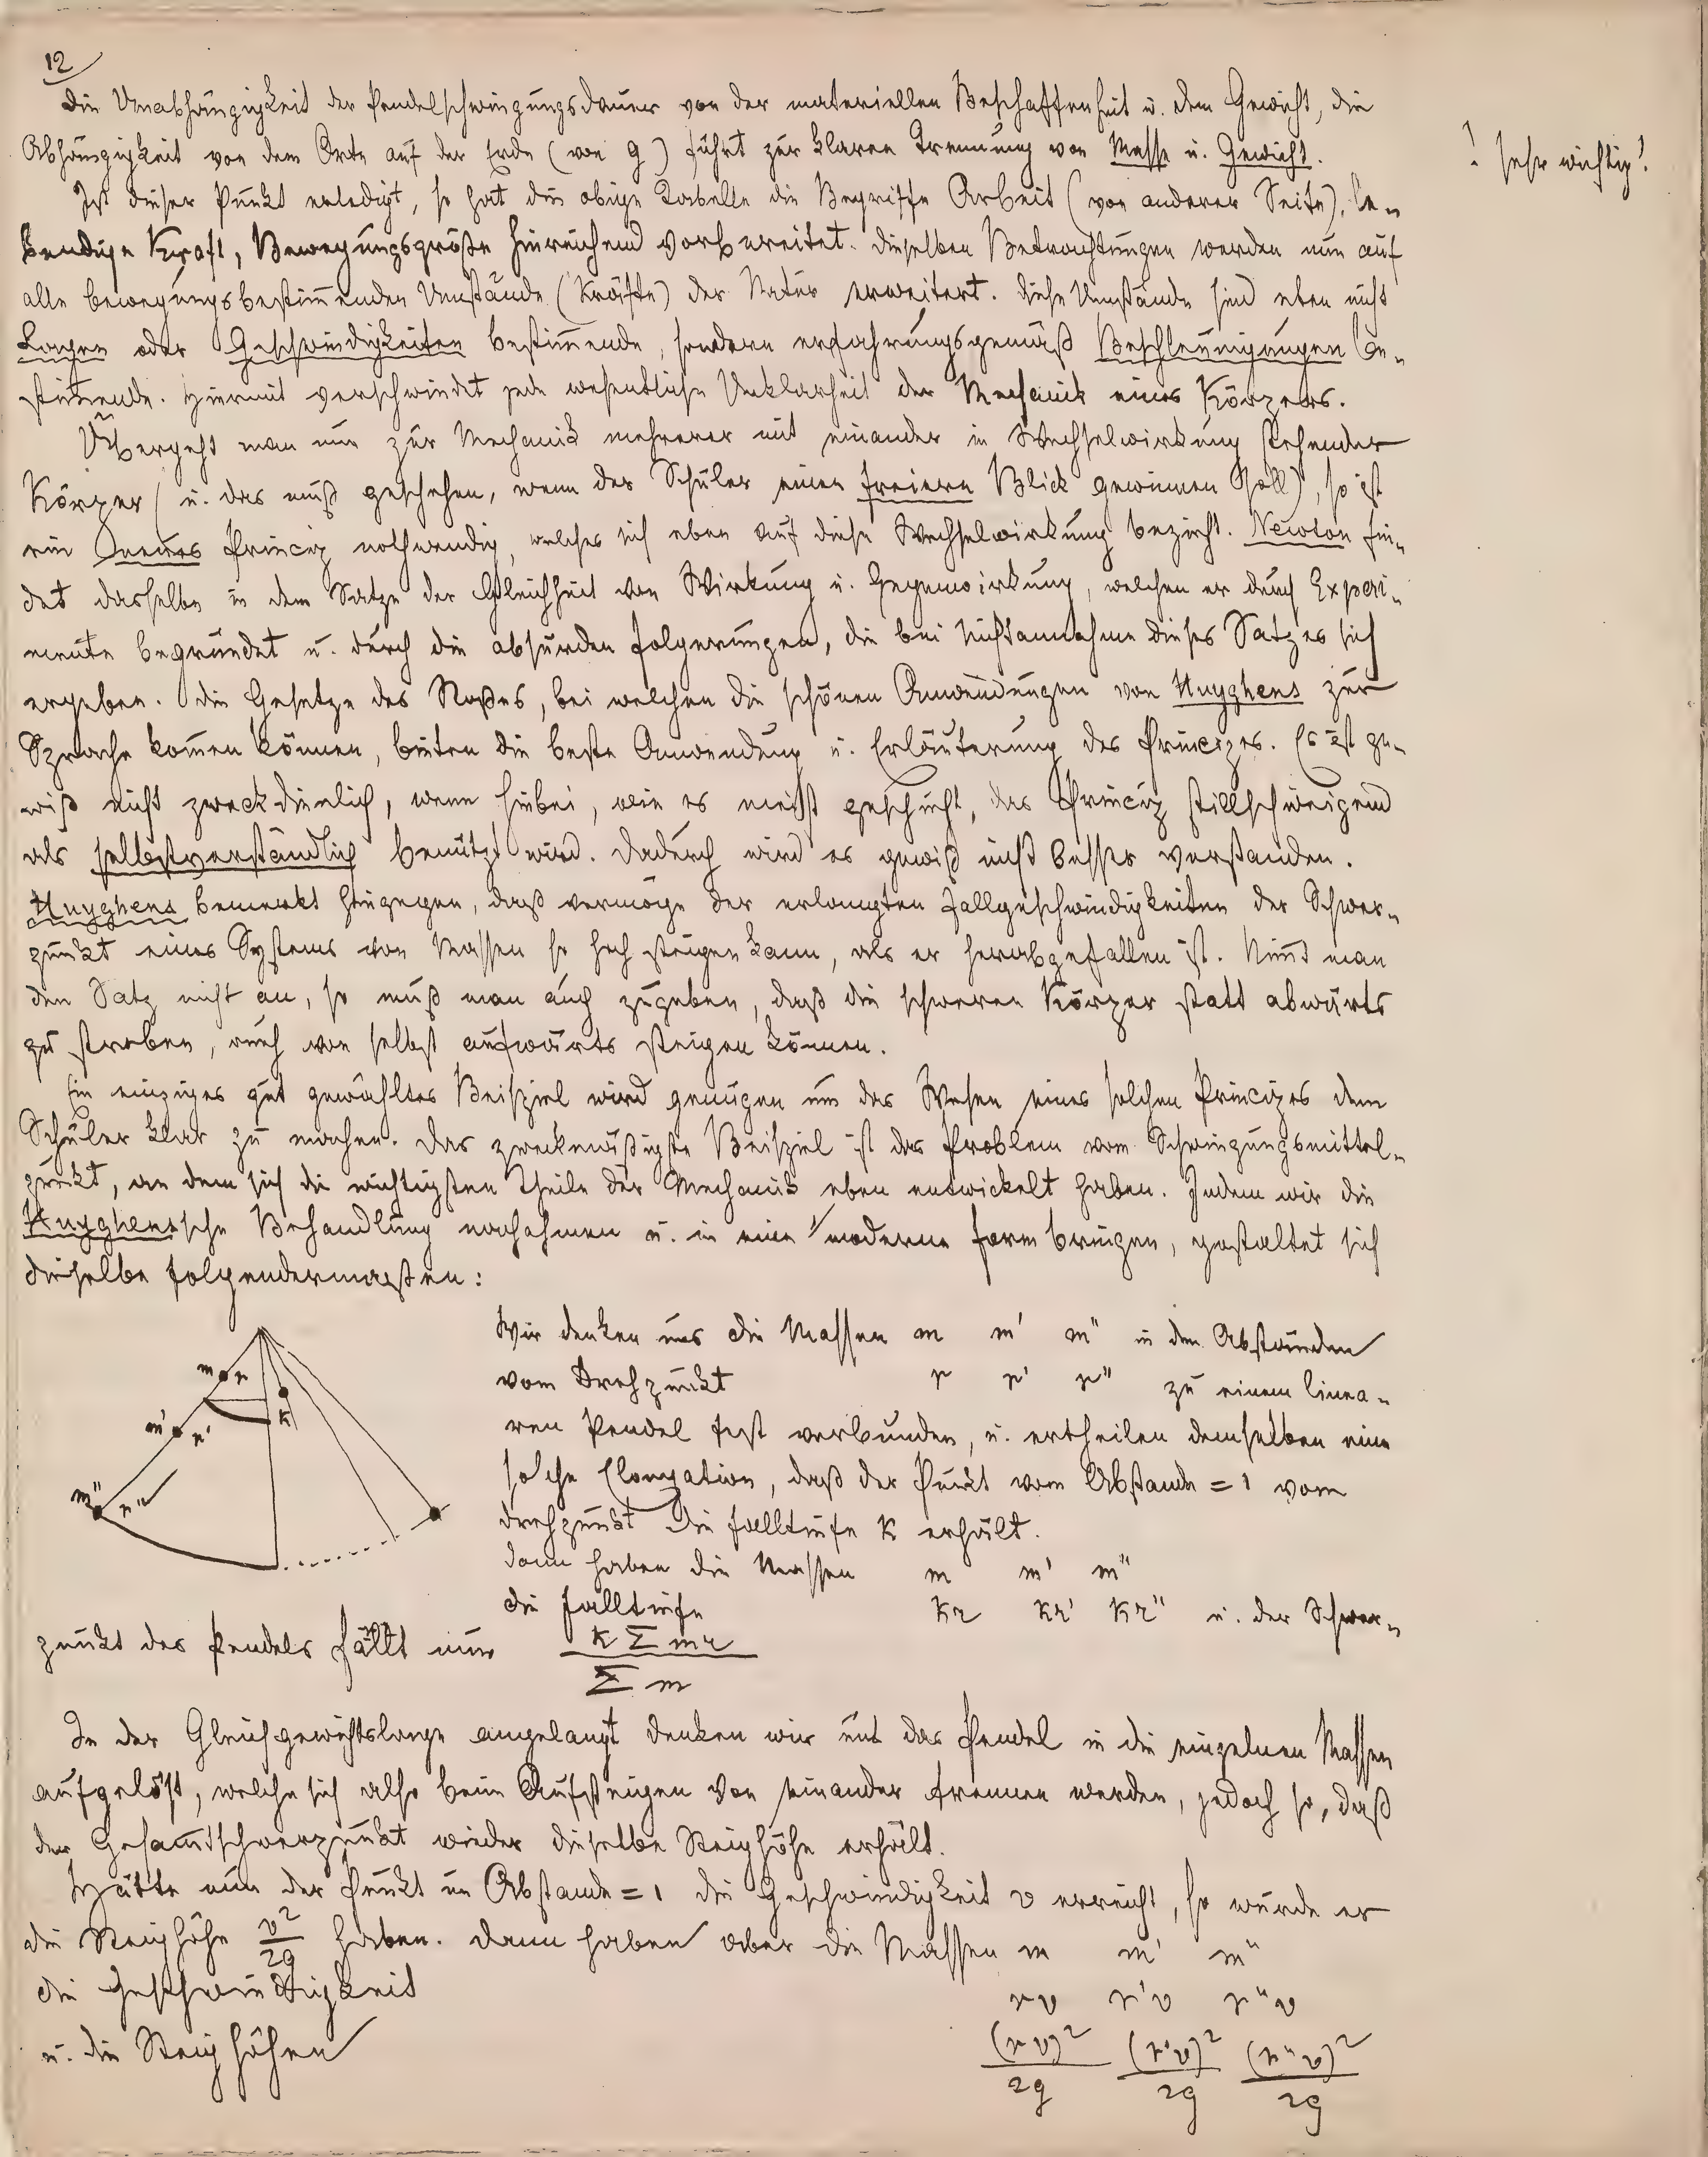 12
Die Unabhängigkeit der Pendelschwingungsdauer von der materiellen Beschaffenheit u. dem Gewicht, die
Abhängigkeit von dem Orte auf der Erde (von g) führt zur klaren Trennung von Masse u. Gewicht.
! sehr wichtig!
Ist dieser Punkt erledigt, so hat die obige Tabelle die Begriffe Arbeit (von anderer Seite), le-
bendige Kraft, Bewegungsgröße hinreichend vorbereitet. Dieselben Betrachtungen werden nun auf
alle bewegungsbestim̄enden Umstände (Kräfte) der Natur erweitert. Diese Umstände sind eben nicht
Lagen oder Geschwindigkeiten bestim̄ende, sondern erfahrungsgemäß Beschleunigungen be-
stim̄ende. Hiermit verschwindet jede wesentliche Unklarheit der Mechanik eines Körpers.
Übergeht man nun zur Mechanik mehrerer mit einander in Wechselwirkung stehender
Körper (u. das muß geschehen, wenn der Schüler einen freiern Blick gewinnen soll), so ist
ein neues Princip nothwendig, welches sich eben auf diese Wechselwirkung bezieht. Newton fin-
det dasselbe in dem Satze der Gleichheit von Wirkung u. Gegenwirkung, welchen er durch Experi-
mente begründet u. durch die absurden Folgerungen, die bei Nichtannahme dieses Satzes sich
ergeben. Die Gesetze des Stoßes, bei welchen die schönen Anwendungen von Huyghens zur
Sprache kom̄en können, bieten die beste Anwendung u. Erläuterung des Principes. Es ist ge-
wiß nicht zweckdienlich, wenn hiebei, wie es meist geschieht, das Princip stillschweigend
als selbstverständlich benützt wird. Dadurch wird es gewiß nicht besser verstanden.
Huyghens bemerkt hingegen, daß vermöge der erlangten Fallgeschwindigkeiten der Schwer-
punkt eines Systems von Massen so hoch steigen kann, als er herabgefallen ist. Nim̄t man
den Satz nicht an, so muß man auch zugeben, daß die schweren Körper statt abwärts
zu streben, auch von selbst aufwärts steigen können.
Ein einziges gut gewähltes Beispiel wird genügen um das Wesen eines solchen Principes dem
Schüler klar zu machen. Das zweckmäßigste Beispiel ist das Problem vom Schwingungsmittel-
punkt, an dem sich die wichtigsten Theile der Mechanik eben entwickelt haben. Indem wir die
Huyghenssche Behandlung nachahmen u. in eine moderne Form bringen, gestaltet sich
dieselbe folgendermaßen:
Wir denken uns die Massen m m' m" in den Abständen
vom Drehpunkt r r' r" zu einem linea-
ren Pendel fest verbunden, u. ertheilen demselben eine
solche Elongation, daß der Punkt vom Abstande = 1 vom
Drehpunkt die Falltiefe k erhält.
Dann haben die Massen m m' m"
die Falltiefe kr kr' kr" u. der Schwer-
m r
k
m' r'
m" r"
punkt des Pendels fällt um k Σ mr
Σ m
In der Gleichgewichtslage angelangt denken wir uns das Pendel in die einzelnen Massen
aufgelöst, welche sich also beim Aufsteigen von einander trennen werden, jedoch so, daß
der Gesam̄tschwerpunkt wieder dieselbe Steighöhe erhält.
Hätte nun der Punkt im Abstande = 1 die Geschwindigkeit v erreicht, so würde er
die Steighöhe v²/2g haben. Dann haben aber die Massen m m' m"
die Geschwindigkeit rv r'v r"v
u. die Steighöhen (rv)²/2g (r'v)²/2g (r"v)²/2g